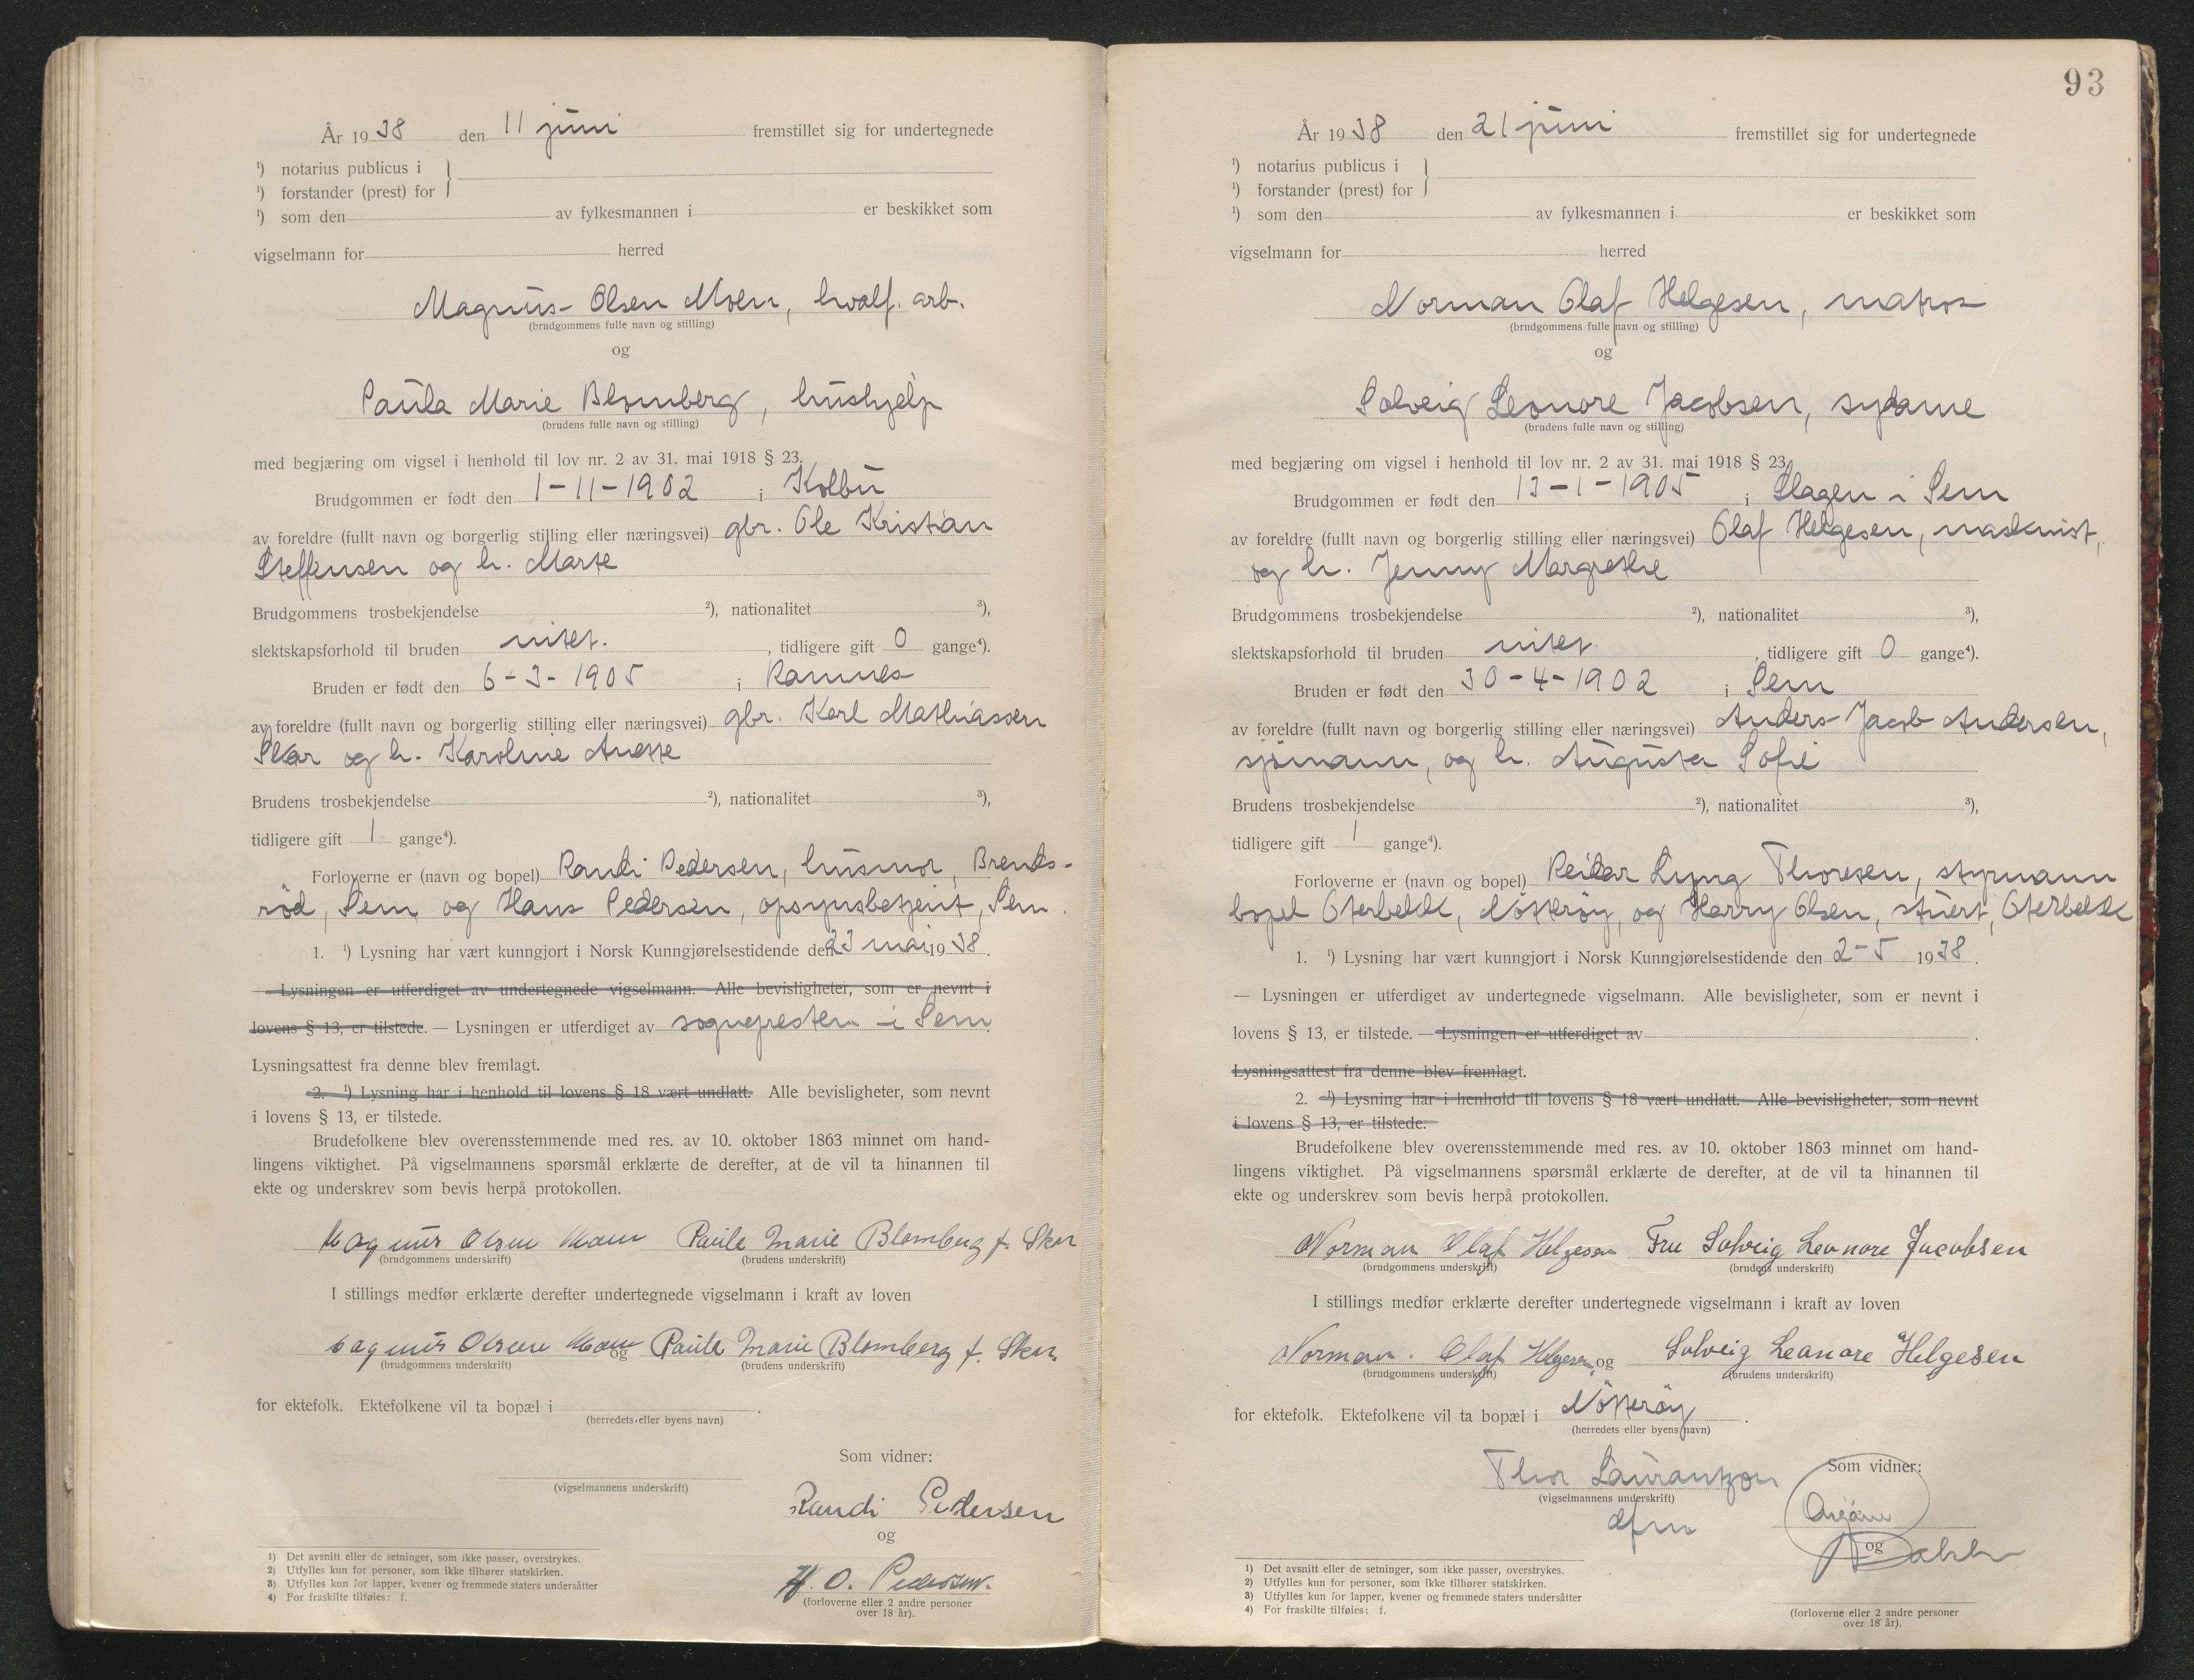 År 1938 den 11 juni fremstillet sig for undertegnede
¹) notarius publicus i
¹) forstander (prest) for
¹) som den av fylkesmannen i er beskikket som
vigselmann for herred
Magnus Olsen Moen, hvalf. arb.
(brudgommens fulle navn og stilling)
og
Paula Marie Blomberg, hushjelp
(brudens fulle navn og stilling)
med begjæring om vigsel i henhold til lov nr. 2 av 31. mai 1918 § 23.
Brudgommen er født den 1-11-1902 i Kolbu
av foreldre (fullt navn og borgerlig stilling eller næringsvei) gbr. Ole Kristian
Steffensen og h. Marte
Brudgommens trosbekjendelse ²), nationalitet ³),
slektskapsforhold til bruden intet. , tidligere gift 0 gange⁴).
Bruden er født den 6-3-1905 i Ramnes
av foreldre (fullt navn og borgerlig stilling eller næringsvei) gbr. Karl Mathiassen
Skar og h. Karoline Anette
Brudens trosbekjendelse ²), nationalitet ³),
tidligere gift 1 gange⁴).
Forloverne er (navn og bopel) Randi Pedersen, husmor, Brends-
rød, Sem og Hans Pedersen, opsynsbetjent, Sem.
1. ¹) Lysning har vært kunngjort i Norsk Kunngjørelsestidende den 23 mai 1938.
— Lysningen er utferdiget av undertegnede vigselmann. Alle bevisligheter, som er nevnt i
lovens § 13, er tilstede. — Lysningen er utferdiget av sognepresten i Sem.
Lysningsattest fra denne blev fremlagt.
2. ¹) Lysning har i henhold til lovens § 18 vært undlatt. Alle bevisligheter, som nevnt
i lovens § 13, er tilstede.
Brudefolkene blev overensstemmende med res. av 10. oktober 1863 minnet om hand-
lingens viktighet. På vigselmannens spørsmål erklærte de derefter, at de vil ta hinannen til
ekte og underskrev som bevis herpå protokollen.
Magnus Olsen Moen Paula Marie Blomberg f. Skar
(brudgommens underskrift) (brudens underskrift)
I stillings medfør erklærte derefter undertegnede vigselmann i kraft av loven
Magnus Olsen Moen og Paula Marie Blomberg f. Skar
(brudgommens underskrift) (brudens underskrift)
for ektefolk. Ektefolkene vil ta bopæl i .
(herredets eller byens navn)
Som vidner:
(vigselmannens underskrift)
Randi Pedersen
og
H. O. Pedersen.
(forloverne eller 2 andre personer
over 18 år).
1) Det avsnitt eller de setninger, som ikke passer, overstrykes.
2) Utfylles kun for personer, som ikke tilhører statskirken.
3) Utfylles kun for lapper, kvener og fremmede staters undersåtter
4) For fraskilte tilføies: f.
93
År 1938 den 21 juni fremstillet sig for undertegnede
¹) notarius publicus i
¹) forstander (prest) for
¹) som den av fylkesmannen i er beskikket som
vigselmann for herred
Norman Olaf Helgesen, matros
(brudgommens fulle navn og stilling)
og
Solveig Leonore Jacobsen, sydame
(brudens fulle navn og stilling)
med begjæring om vigsel i henhold til lov nr. 2 av 31. mai 1918 § 23.
Brudgommen er født den 13-1-1905 i Slagen i Sem
av foreldre (fullt navn og borgerlig stilling eller næringsvei) Olaf Helgesen, maskinist,
og h. Jenny Margrethe
Brudgommens trosbekjendelse ²), nationalitet ³),
slektskapsforhold til bruden intet. , tidligere gift 0 gange⁴).
Bruden er født den 30-4-1902 i Sem
av foreldre (fullt navn og borgerlig stilling eller næringsvei) Anders Jacob Andersen,
sjömann, og h. Augusta Sofie
Brudens trosbekjendelse ²), nationalitet ³),
tidligere gift 1 gange⁴).
Forloverne er (navn og bopel) Reidar Lyng Thoresen, styrmann
bopel Oterbekk, Nötteröy, og Harry Olsen, stuert, Oterbekk
1. ¹) Lysning har vært kunngjort i Norsk Kunngjørelsestidende den 2-5 1938.
— Lysningen er utferdiget av undertegnede vigselmann. Alle bevisligheter, som er nevnt i
lovens § 13, er tilstede. — Lysningen er utferdiget av .
Lysningsattest fra denne blev fremlagt.
2. ¹) Lysning har i henhold til lovens § 18 vært undlatt. Alle bevisligheter, som nevnt
i lovens § 13, er tilstede.
Brudefolkene blev overensstemmende med res. av 10. oktober 1863 minnet om hand-
lingens viktighet. På vigselmannens spørsmål erklærte de derefter, at de vil ta hinannen til
ekte og underskrev som bevis herpå protokollen.
Norman Olaf Helgesen Fru Solveig Leonore Jacobsen
(brudgommens underskrift) (brudens underskrift)
I stillings medfør erklærte derefter undertegnede vigselmann i kraft av loven
Norman. Olaf Helgesen og Solveig Leonore Helgesen
(brudgommens underskrift) (brudens underskrift)
for ektefolk. Ektefolkene vil ta bopæl i Nötteröy .
(herredets eller byens navn)
Thor Laurantzon
(vigselmannens underskrift)
dfm
Som vidner:
og
(forloverne eller 2 andre personer
over 18 år).
1) Det avsnitt eller de setninger, som ikke passer, overstrykes.
2) Utfylles kun for personer, som ikke tilhører statskirken.
3) Utfylles kun for lapper, kvener og fremmede staters undersåtter
4) For fraskilte tilføies: f.